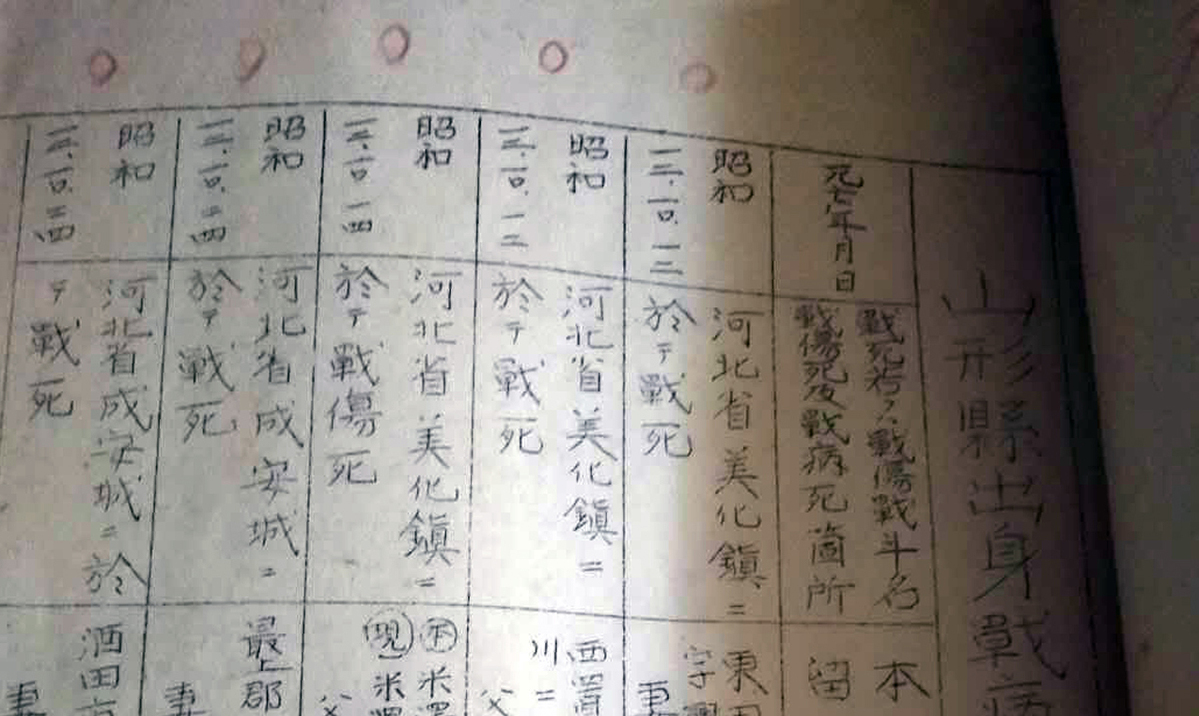 山形縣出身戰病
死亡年月日
戰死若クハ戰傷戰斗名
戰傷死及戰病死箇所
本
留
昭和
一三.一〇.一三
河北省美化鎭ニ
於テ戰死
東田
字
妻
昭和
一三.一〇.一三
河北省美化鎭ニ
於テ戰死
西置
川ニ
父
昭和
一三.一〇.一四
河北省美化鎭ニ
於テ戰傷死
米澤
現 米澤
父
昭和
一三.一〇.二四
河北省成安城ニ
於テ戰死
最上郡
妻
昭和
一三.一〇.二四
河北省成安城ニ於
テ戰死
酒田市
妻